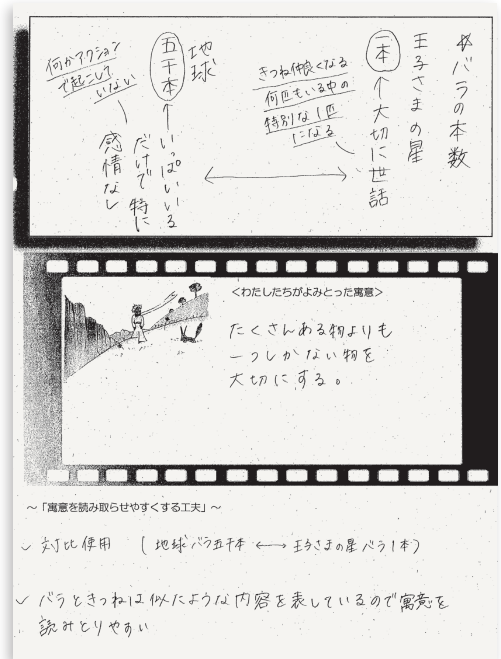 ☆バラの本数
王子さまの星
一本 ↑ 大切に世話
きつね仲良くなる
何匹もいる中の
特別な1匹
になる
地球
五千本 ↑ いっぱいいる
だけで特に
感情なし
何かアクション
で起こして
いない
<わたしたちがよみとった寓意>
たくさんある物よりも
一つしかない物を
大切にする。
~「寓意を読み取らせやすくする工夫」~
✓ 対比使用 (地球バラ五千本 ⟷ 王子さまの星バラ1本)
✓ バラときつねは似たような内容を表しているので寓意を
読みとりやすい